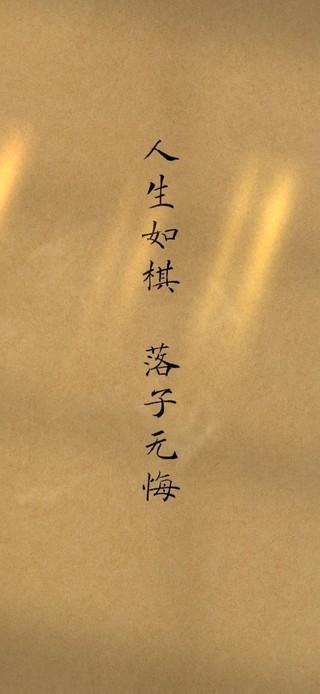 人生如棋 落子无悔